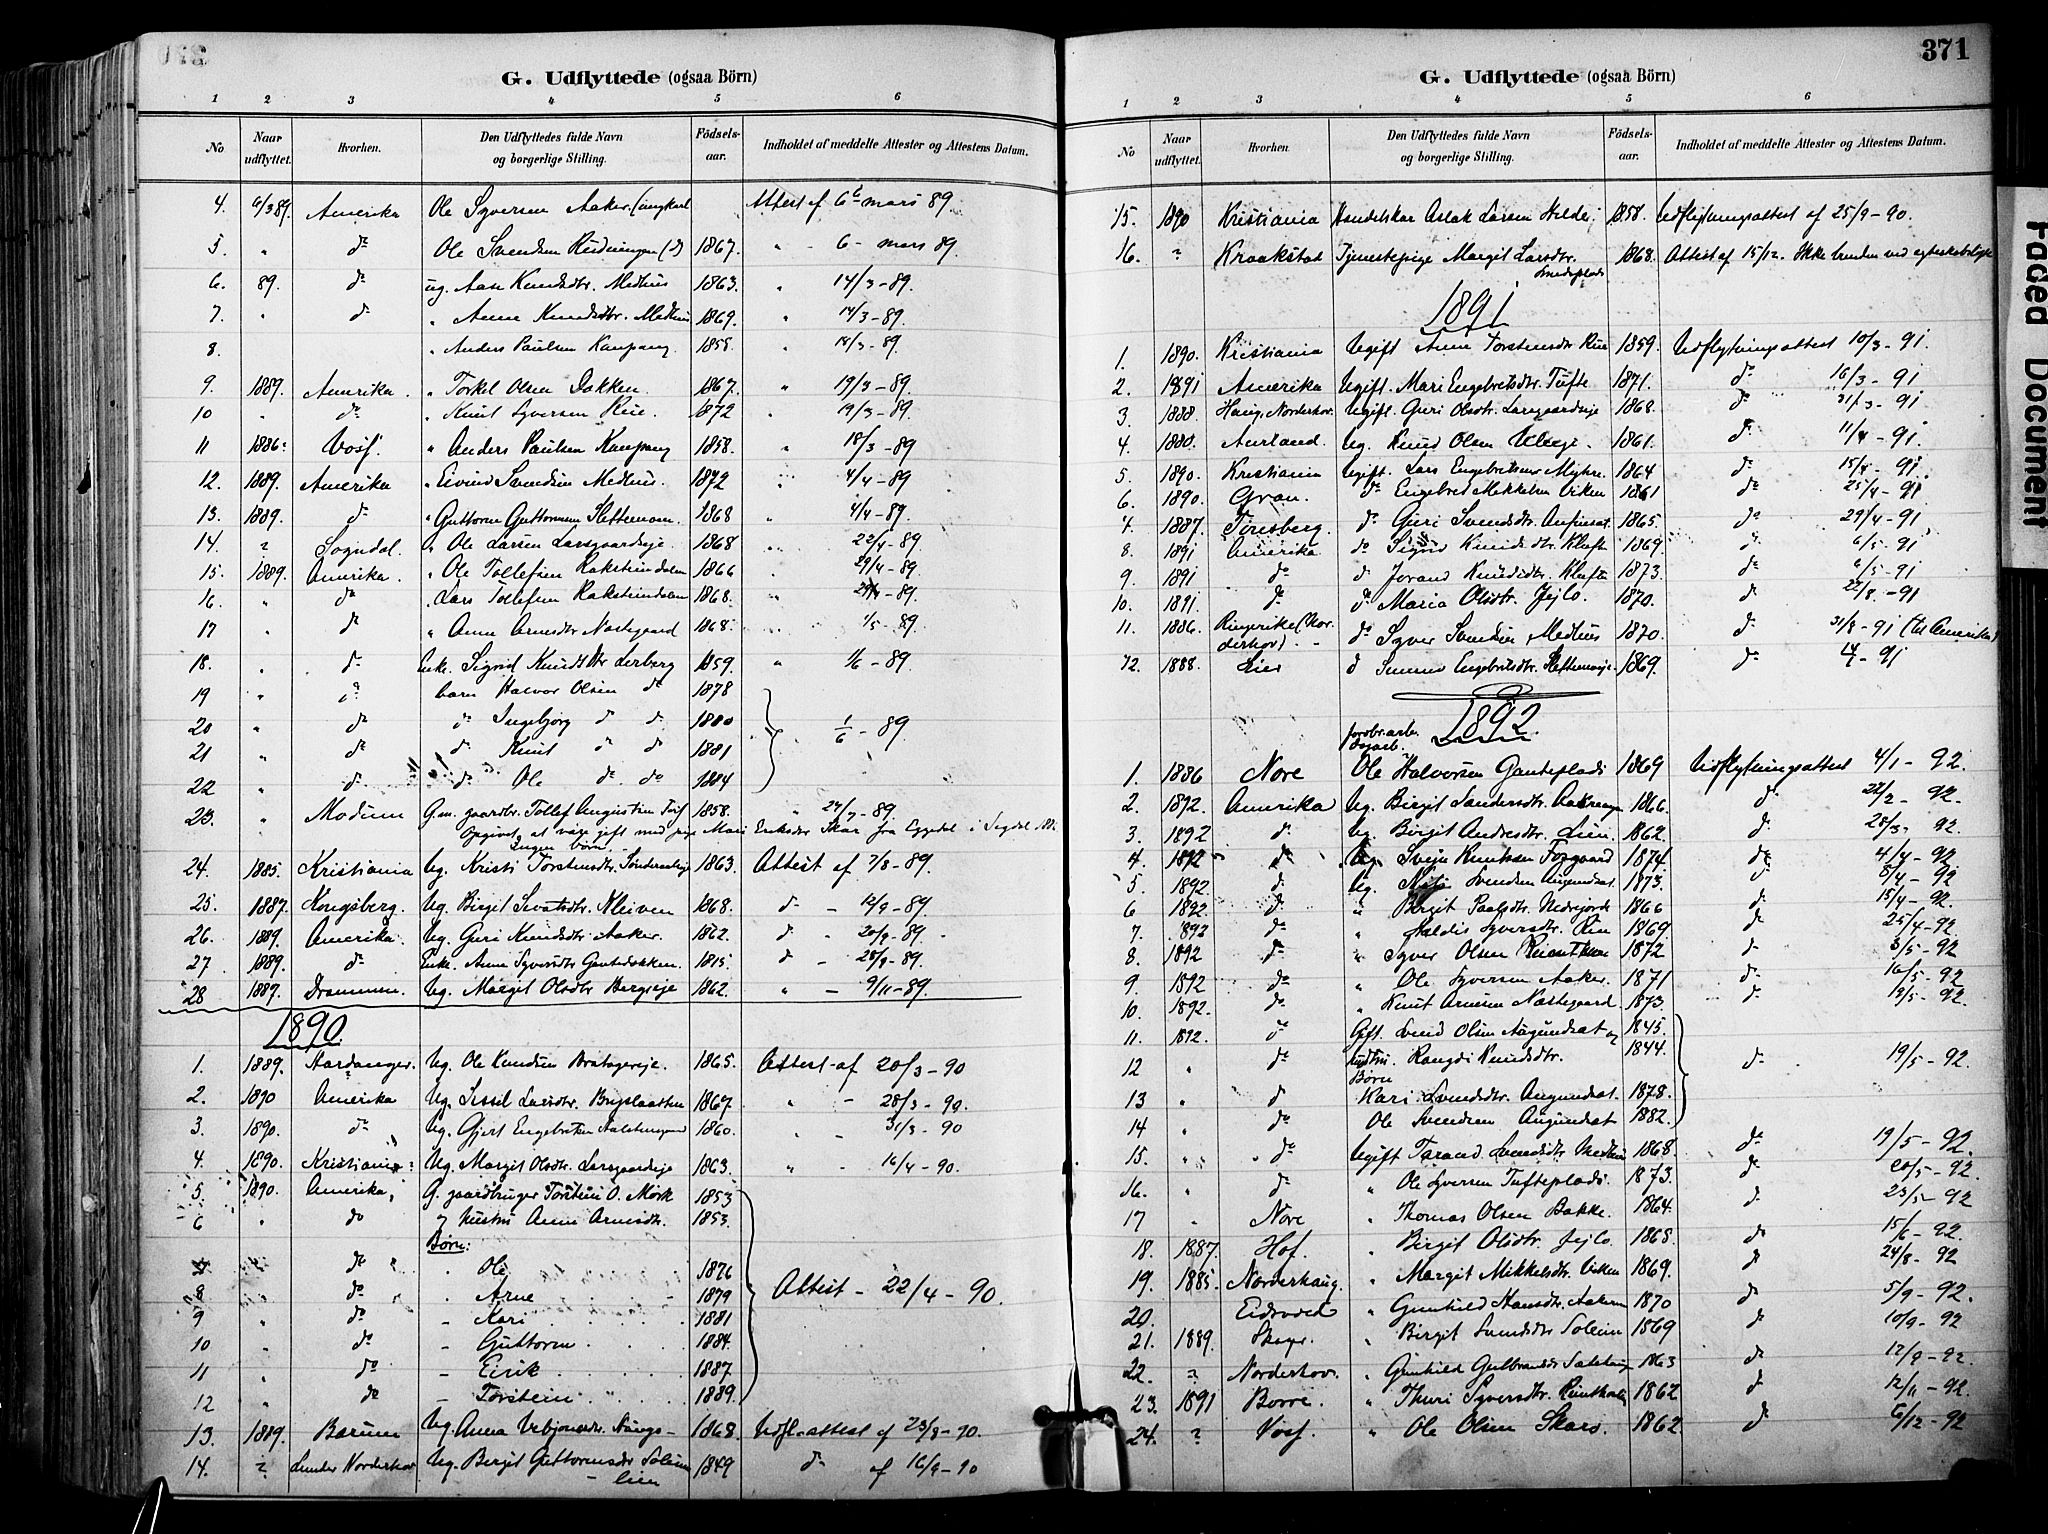 G. Udflyttede (ogsaa Börn)
1 2 3 4 5 6
No Naar udflyttet. Hvorhen. Den Udflyttedes fulde Navn og borgerlige Stilling. Födsels-aar. Indholdet af meddelte Attester og Attestens Datum.
4. 6/3 89. Amerika Ole Syversen Aaker (ungkarl Attest af 6te mars 89.
5. " do Ole Svendsen Rudningen (d) 1867. " - 6 - mars 89.
6. 89. do ug. Aase Knudsdtr. Medhus 1863. " 14/3 - 89.
7. " do " Anne Knudsdtr. Medhus 1869. " 14/3 - 89.
8. " Anders Paulsen Kaupang. 1858. " 18/3 - 89.
9. 1889. Amerika. " Torkel Olsen Dokken. 1867. " 19/3 - 89.
10 " do " Knut Syversen Rue. 1872 " 19/3 - 89.
11 1886. Voss. " Anders Paulsen Kaupang 1858. " 18/3 - 89
12. 1889. Amerika " Eivind Svendsen Medhus. 1872 " 4/4 - 89
13. 1889. do " Guttorm Guttormsen Slettemoen. 1868 " 4/4 - 89.
14. ? Sogndal. " Ole Larsen Larsgaardseje. 1868 " 22/4 - 89
15. 1889. Amerika. " Ole Tollefsen 1866 29/4 - 89.
16. " do " Lars Tollefsen 1868. " 29/4 - 89.
17 " do " Anna Arnesdtr Næstegaard 1868. " 1/5 - 89.
18. " do Enke. Sigrid Knudsdtr Lerberg 1859. " 1/6 - 89
19 " do barn Halvor Olsen do 1878
20 " do do Ingebjørg do do 1880 1/6 - 89
21 " do do Knut do do 1881
22 " do do Ole do do 1884
23. " Modum G.m. gaardbr. Tollef Augustsen 1858. " 27/7 - 89.
Opgivet at være gift med pige Mari Eriksdtr Skar fra Eggedal i Sigdal
Ingen børn. -
24. 1885. Kristiania Ug. Kristi Torstensdtr. 1863. Attest af 7/8 - 89.
25. 1887. Kongsberg. Ug. Birgit Sevatsdtr. Kleiven 1868. do - 12/9 - 89.
26. 1889. Amerika. Ug. Guri Knudsdtr. Aaker. 1862. do - 20/9 - 89.
27. 1889. do Enke. Anne Syversdtr Gautedokken. 1815. do - 28/9 - 89.
28 1887. Drammen. Ug. Margit Olsdtr Bergseje 1862. " - 9/11 - 89.
1890.
1. 1889. Hardanger. Ug. Ole Knudsen Bratagereje. 1865. Attest af 20/3 - 90
2. 1890 Amerika Ug. Sissel Larsdtr. 1867. " - 28/3 - 90.
3. 1890. do Ug. Gjert Engebretsen 1860. " - 31/3 - 90
4. 1890. Kristiania. Ug. Margit Olsdtr. Larsgaardseje 1863. " - 16/4 - 90.
5. 1890. Amerika. G. gaardbruger Torstein O. Mørk 1853
6 " do og hustru Anne Arnesdtr. 1853.
Børn:
7 " do " Ole 1876
8 " do " Arne 1879 Attest - 22/4 - 90.
9 " do - Kari 1881
10 " do - Guttorm 1884.
11 " do - Eirik 1887
12 " do - Torstein 1889.
13. 1889. Bærum Ug. Anna 1868. Udfl.attest af 23/8 - 90.
14. ? Lunder Norderhov Ug. Birgit Guttormsdtr Solem 1849 do af 16/9 - 90
- lien

371
G. Udflyttede (ogsaa Börn)
1 2 3 4 5 6
No Naar udflyttet. Hvorhen. Den Udflyttedes fulde Navn og borgerlige Stilling. Födsels-aar. Indholdet af meddelte Attester og Attestens Datum.
15. 1890 Kristiania Handelskar Aslak Larsen Hilde. 1858. Udflytningsattest af 25/9 - 90.
16. ? Kraakstad Tjenestepige Margit Larsdtr. 1868. Attest af 15/12. Ikke bunden ved egteskabsløfte
1891
1. 1890. Kristiania Ugift Anne Torstensdtr Rue 1859. Udflytningsattest 10/3 - 91.
2. 1891 Amerika Ugift. Mari Engebretsdtr. Tufte 1871. do 16/3 - 91
3. 1888. Haug, Norderhov. Ugift. Guri Olsdtr. Larsgaardseje 1868. do 31/3 - 91
4. 1880. Aurland. Ug. Knud Olsen 1861. do 11/4 - 91.
5. 1890. Kristiania Ugift. Lars Engebretsen Myhre. 1864 do 15/4 - 91.
6. 1890. Gran. do Engebret Mikkelsen Viken 1861 do 25/4 - 91
4. 1887. Tønsberg. do Guri Svendsdtr. 1865. do 29/4 - 91.
8. 1891 Amerika do Sigrid Knudsdtr. 1869 do 6/5 - 91
9. 1891 do do Jorand Knudsdtr. 1873. do 6/5 - 91
10. 1891. do do Maria Olsdtr. Jejlo. 1870. do 22/8 - 91
11. 1886. Ringerike (Norderhov). do Syver Svendsen Medhus 1870. do 31/8 - 91 (til Amerika)
12. 1888. Lier do Engebretsdtr. Slettemoeje. 1869. do - 91
1892.
jordbr.arb. dagarb.
1. 1886 Nore Ole Halvorsen Gauteplads 1869 Udflytningsattest 4/1 - 92.
2. 1892. Amerika Ug. Birgit Sandersdtr. 1866. do 22/2 - 92.
3. 1892 do Ug. Birgit Andresdtr. Lien. 1862. do 28/3 92.
4. 1892 do Ug. Svejn Knutsen Fosgaard 1874. do 4/4 - 92
5. 1892. do Ug. Nils Svendsen Augundsat. 1873. do 8/4 - 92
6 1892. do " Birgit Paalsdtr. Nedrejord 1866 do 15/4 - 92.
7. 1892 do " Haldis Syversdtr. Rue 1869 do 25/4 - 92.
8. 1892 do " Syver Olsen 1872 do 3/5 - 92
9. 1892 do " Ole Syversen Aaker. 1871 do 16/5 - 92
10. 1892. do " Knut Arnesen Næstegaard 1873. do 19/5 - 92.
11. 1892. do Gift. Svend Olsen Augundsat og 1845.
12 " do hustru. Rangdi Knudsdtr. 1844. do 19/5 - 92.
Børn
13 " do Kari Svendsdtr. Augundsat. 1878.
14 " do Ole Svendsen Augundsat 1882.
15. " do Ugift Tarand Svendsdtr Medhus 1868. do 19/5 - 92.
16. " do " Ole Syversen Tufteplads. 1873. do 20/5 - 92.
17 " Nore " Thomas Olsen Bakke. 1864. do 23/5 - 92
18. 1887. Hof. " Birgit Olsdtr. Jejlo. 1868. do 15/6 - 92.
19. 1885. Norderhaug. " Margit Mikkelsdtr. Viken 1869. do 24/8 - 92
20. Eidsvold " Gunhild Hansdtr. 1870 do 5/9 - 92.
21. 1889. Skoger. " Birgit Svendsdtr Solem 1869 do 10/9 - 92
22. ? Norderhov. " Gunhild Gulbrandsdtr 1863 do 12/9 - 92.
23. 1891 Borre. " Thuri Syversdtr. 1862 do 12/11 - 92.
24. ? Voss. " Ole Olsen Skaro. 1862. do 6/12 - 92